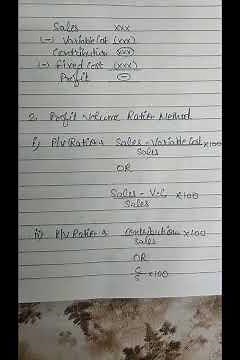 Sales xxx
(-) Variable Cost (xxx)
Contribution xxx
(-) Fixed Cost (xxx)
Profit -
2. Profit Volume Ratio Method
i) P/V Ratio = Sales - Variable Cost x100
Sales
OR
Sales - V.C x100
Sales
ii) P/V Ratio = Contribution x100
Sales
OR
C x100
S